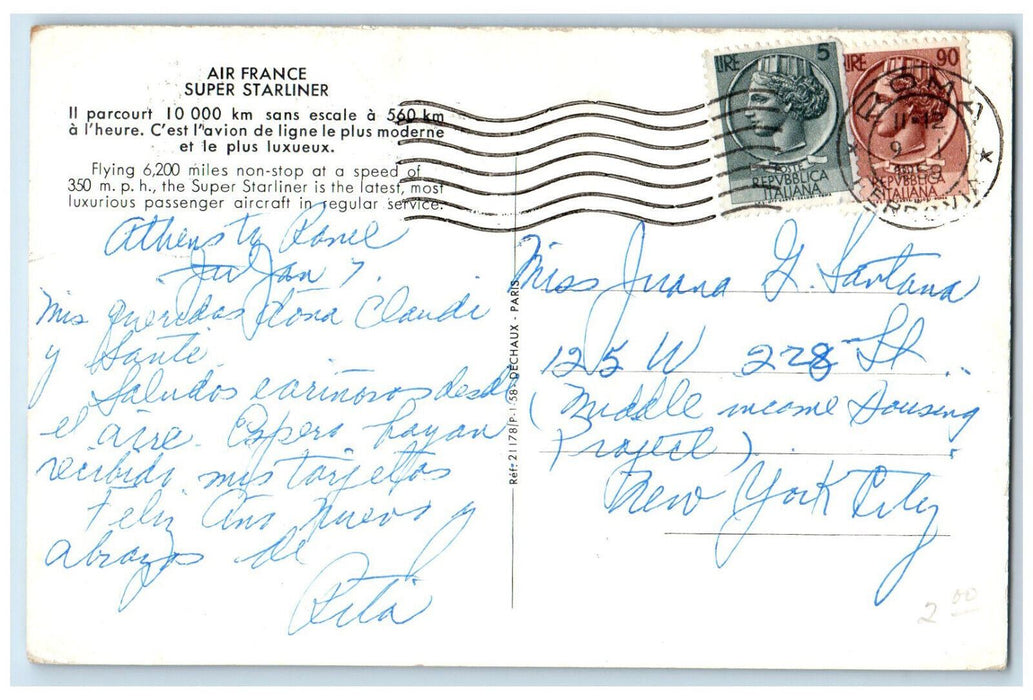 AIR FRANCE
SUPER STARLINER
Il parcourt 10 000 km sans escale à 560 km
à l'heure. C'est l'avion de ligne le plus moderne
et le plus luxueux.
Flying 6,200 miles non-stop at a speed of
350 m. p. h., the Super Starliner is the latest, most
luxurious passenger aircraft in regular service.
5 LIRE
POSTE
REPVBBLICA
ITALIANA
LIRE 90
REPVBBLICA
ITALIANA
ROMA
11-12
9 1
1959
FERROVIA
Athens to Rome
Jan 7.
Mis queridas Dona Claudi
y Santé
Saludos cariñosos desde
el aire. Espero hayan
recibido mis tarjetas
Feliz Ano Nuevo y
abrazos de
Rita
Réf. 21178/P-1-58- DÉCHAUX - PARIS
Miss Juana G. Santana
125 W 228 St.
(Middle income Housing
Project)
New York City
2 00